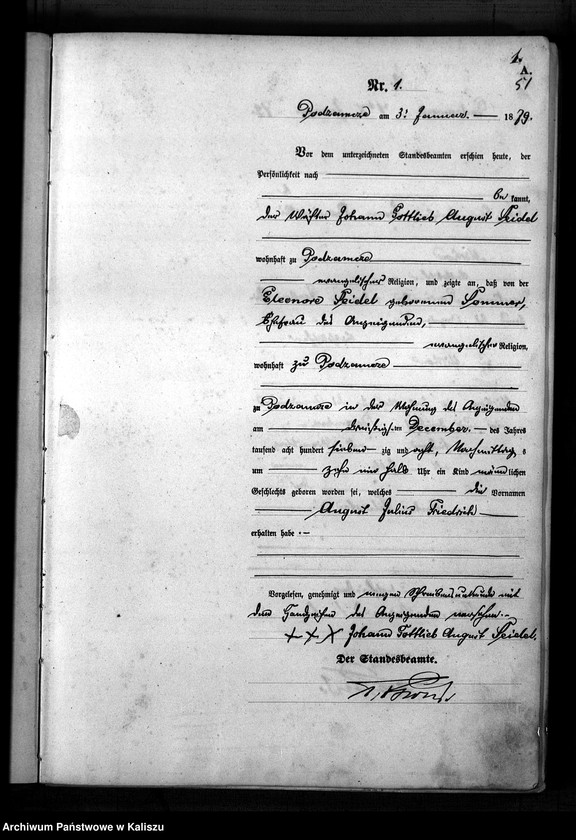 1.
A.
51
Nr. 1.
Podzamcze am 3. Januar 1879.
Vor dem unterzeichneten Standesbeamten erschien heute, der
Persönlichkeit nach
bekannt,
der Johann Gottlieb August Seidel
wohnhaft zu Podzamcze
evangelischer Religion, und zeigte an, daß von der
Eleonore Seidel geborenen Sommer,
Ehefrau des Anzeigenden,
evangelischer Religion,
wohnhaft zu Podzamcze
zu Podzamcze in der Wohnung des Anzeigenden
am dreißigsten December des Jahres
tausend acht hundert siebenzig und acht, Nachmittags
um zehn ein halb Uhr ein Kind männlichen
Geschlechts geboren worden sei, welches die Vornamen
August Julius Friedrich
erhalten habe.
Vorgelesen, genehmigt und wegen Schreibensunkunde mit
den Handzeichen des Anzeigenden versehen.
+++ Johann Gottlieb August Seidel.
Der Standesbeamte.
Archiwum Państwowe w Kaliszu